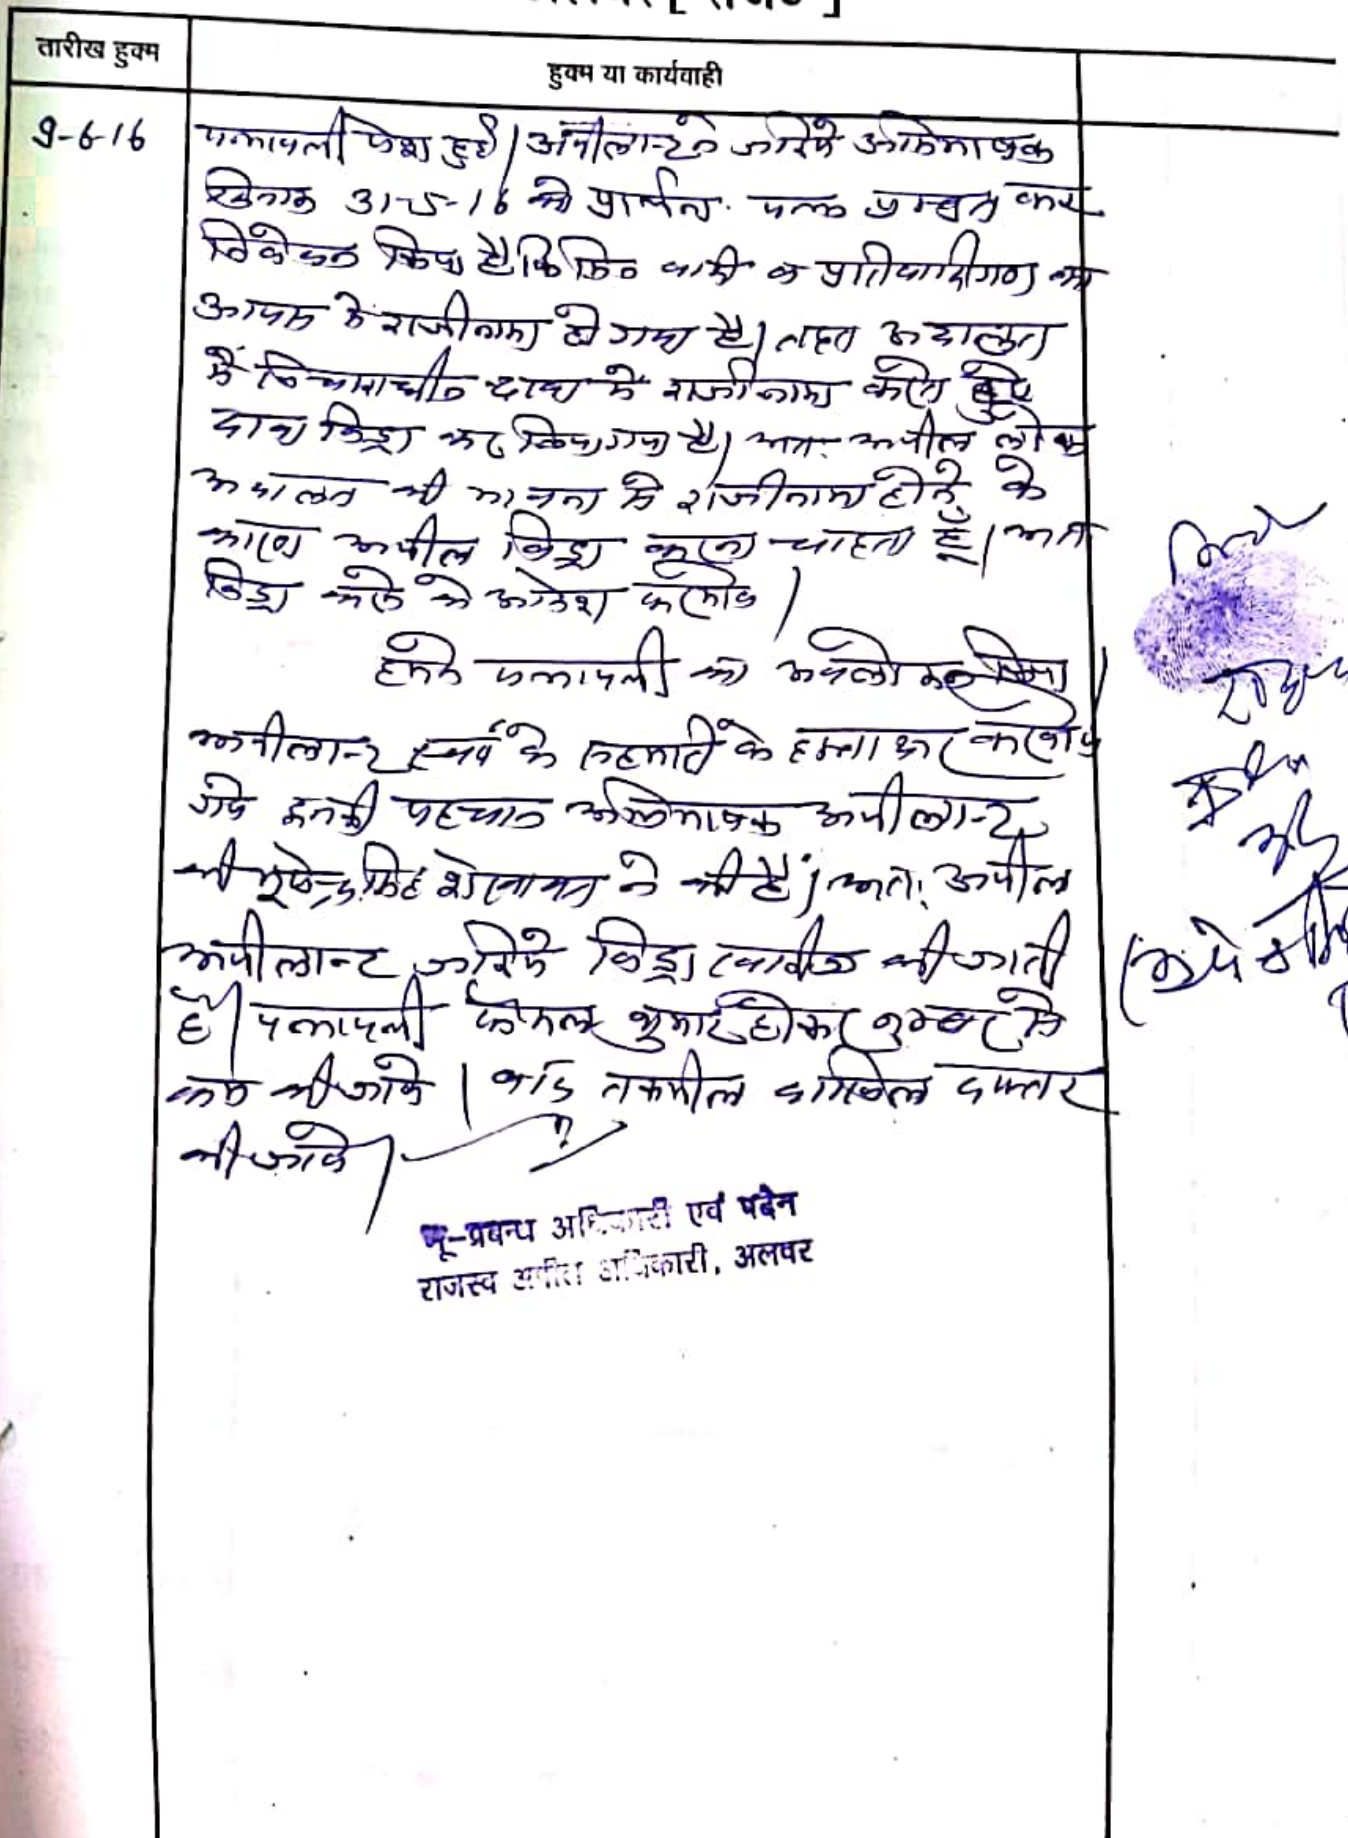 तारीख हुक्म
हुक्म या कार्यवाही
9-6-16
पत्रावली पेश हुई। अपीलान्ट ने जरिये अभिभाषक
दिनांक 31-5-16 को प्रार्थना पत्र प्रस्तुत कर
निवेदन किया है कि वादी व प्रतिवादीगण का
आपस में राजीनामा हो गया है। तहत अदालत
में विचाराधीन दावा में राजीनामा होते हुए
दावा विड्रा कर लिया गया है। अतः अपील लोक
अदालत की भावना से राजीनामा होने के
कारण अपील विड्रा करना चाहता हूँ। अतः
विड्रा करने के आदेश फरमावें।
हमने पत्रावली का अवलोकन किया।
अपीलान्ट स्वयं के सहमति के हस्ताक्षर करवाये
गये इनकी पहचान अभिभाषक अपीलान्ट
श्री भूपेन्द्र सिंह शेखावत ने की है। अतः अपील
अपीलान्ट जरिये विड्रा खारीज की जाती
है। पत्रावली फैसल शुमार होकर नम्बर से
कम की जावे। बाद तकमील दाखिल दफ्तर
की जावे।
भू-प्रबन्ध अधिकारी एवं पदेन
राजस्व अपील अधिकारी, अलवर